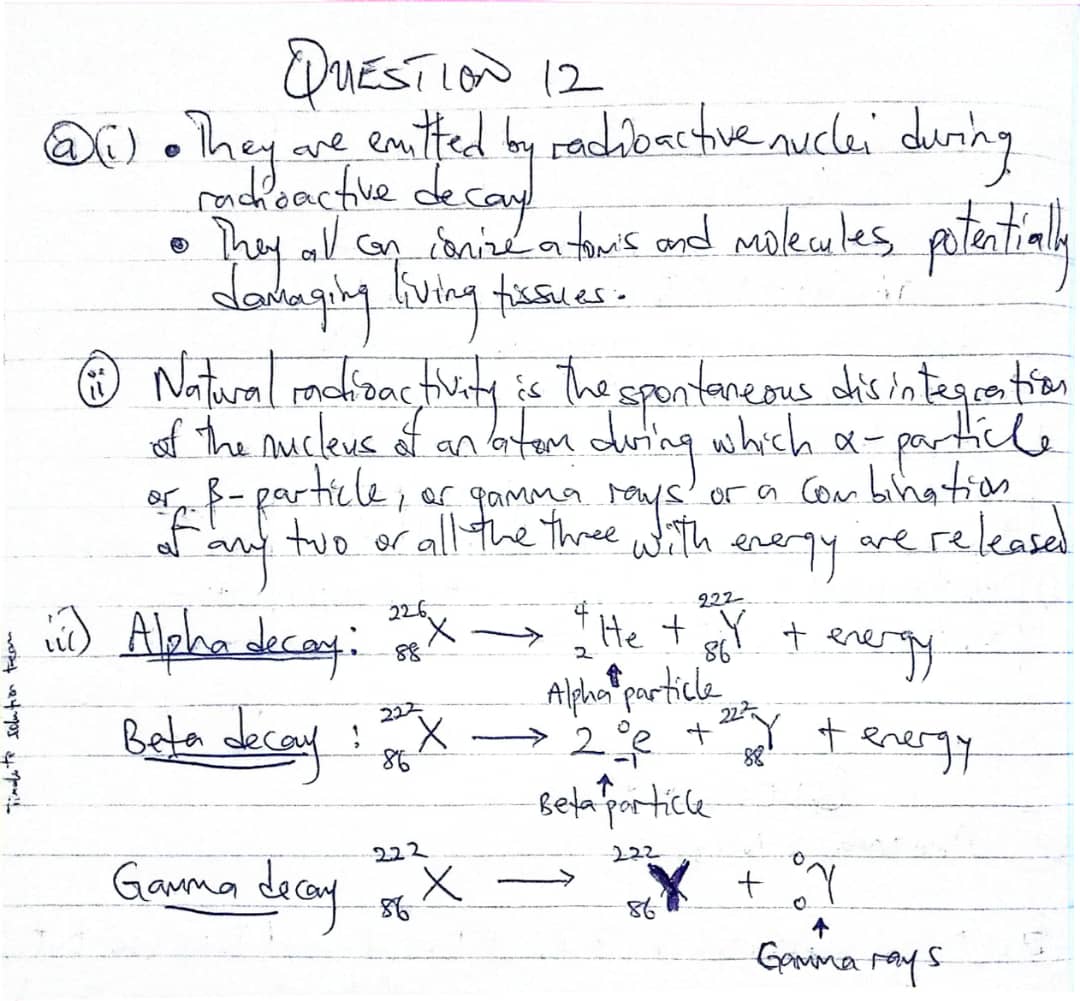 QUESTION 12
ⓐ(i) • They are emitted by radioactive nuclei during
radioactive decay
• They all can ionize atoms and molecules, potentially
damaging living tissues.
ⓘⓘ Natural radioactivity is the spontaneous disintegration
of the nucleus of an atom during which α-particle
or β-particle, or gamma rays or a combination
of any two or all the three with energy are released
iii) Alpha decay: ²²⁶₈₈X → ⁴₂He + ²²²₈₆Y + energy
↑ Alpha particle
Beta decay : ²²²₈₆X → 2 ⁰₋₁e + ²²²₈₈Y + energy
↑
Beta particle
Gamma decay ²²²₈₆X → ²²²₈₆Y + ⁰₀γ
↑
Gamma rays